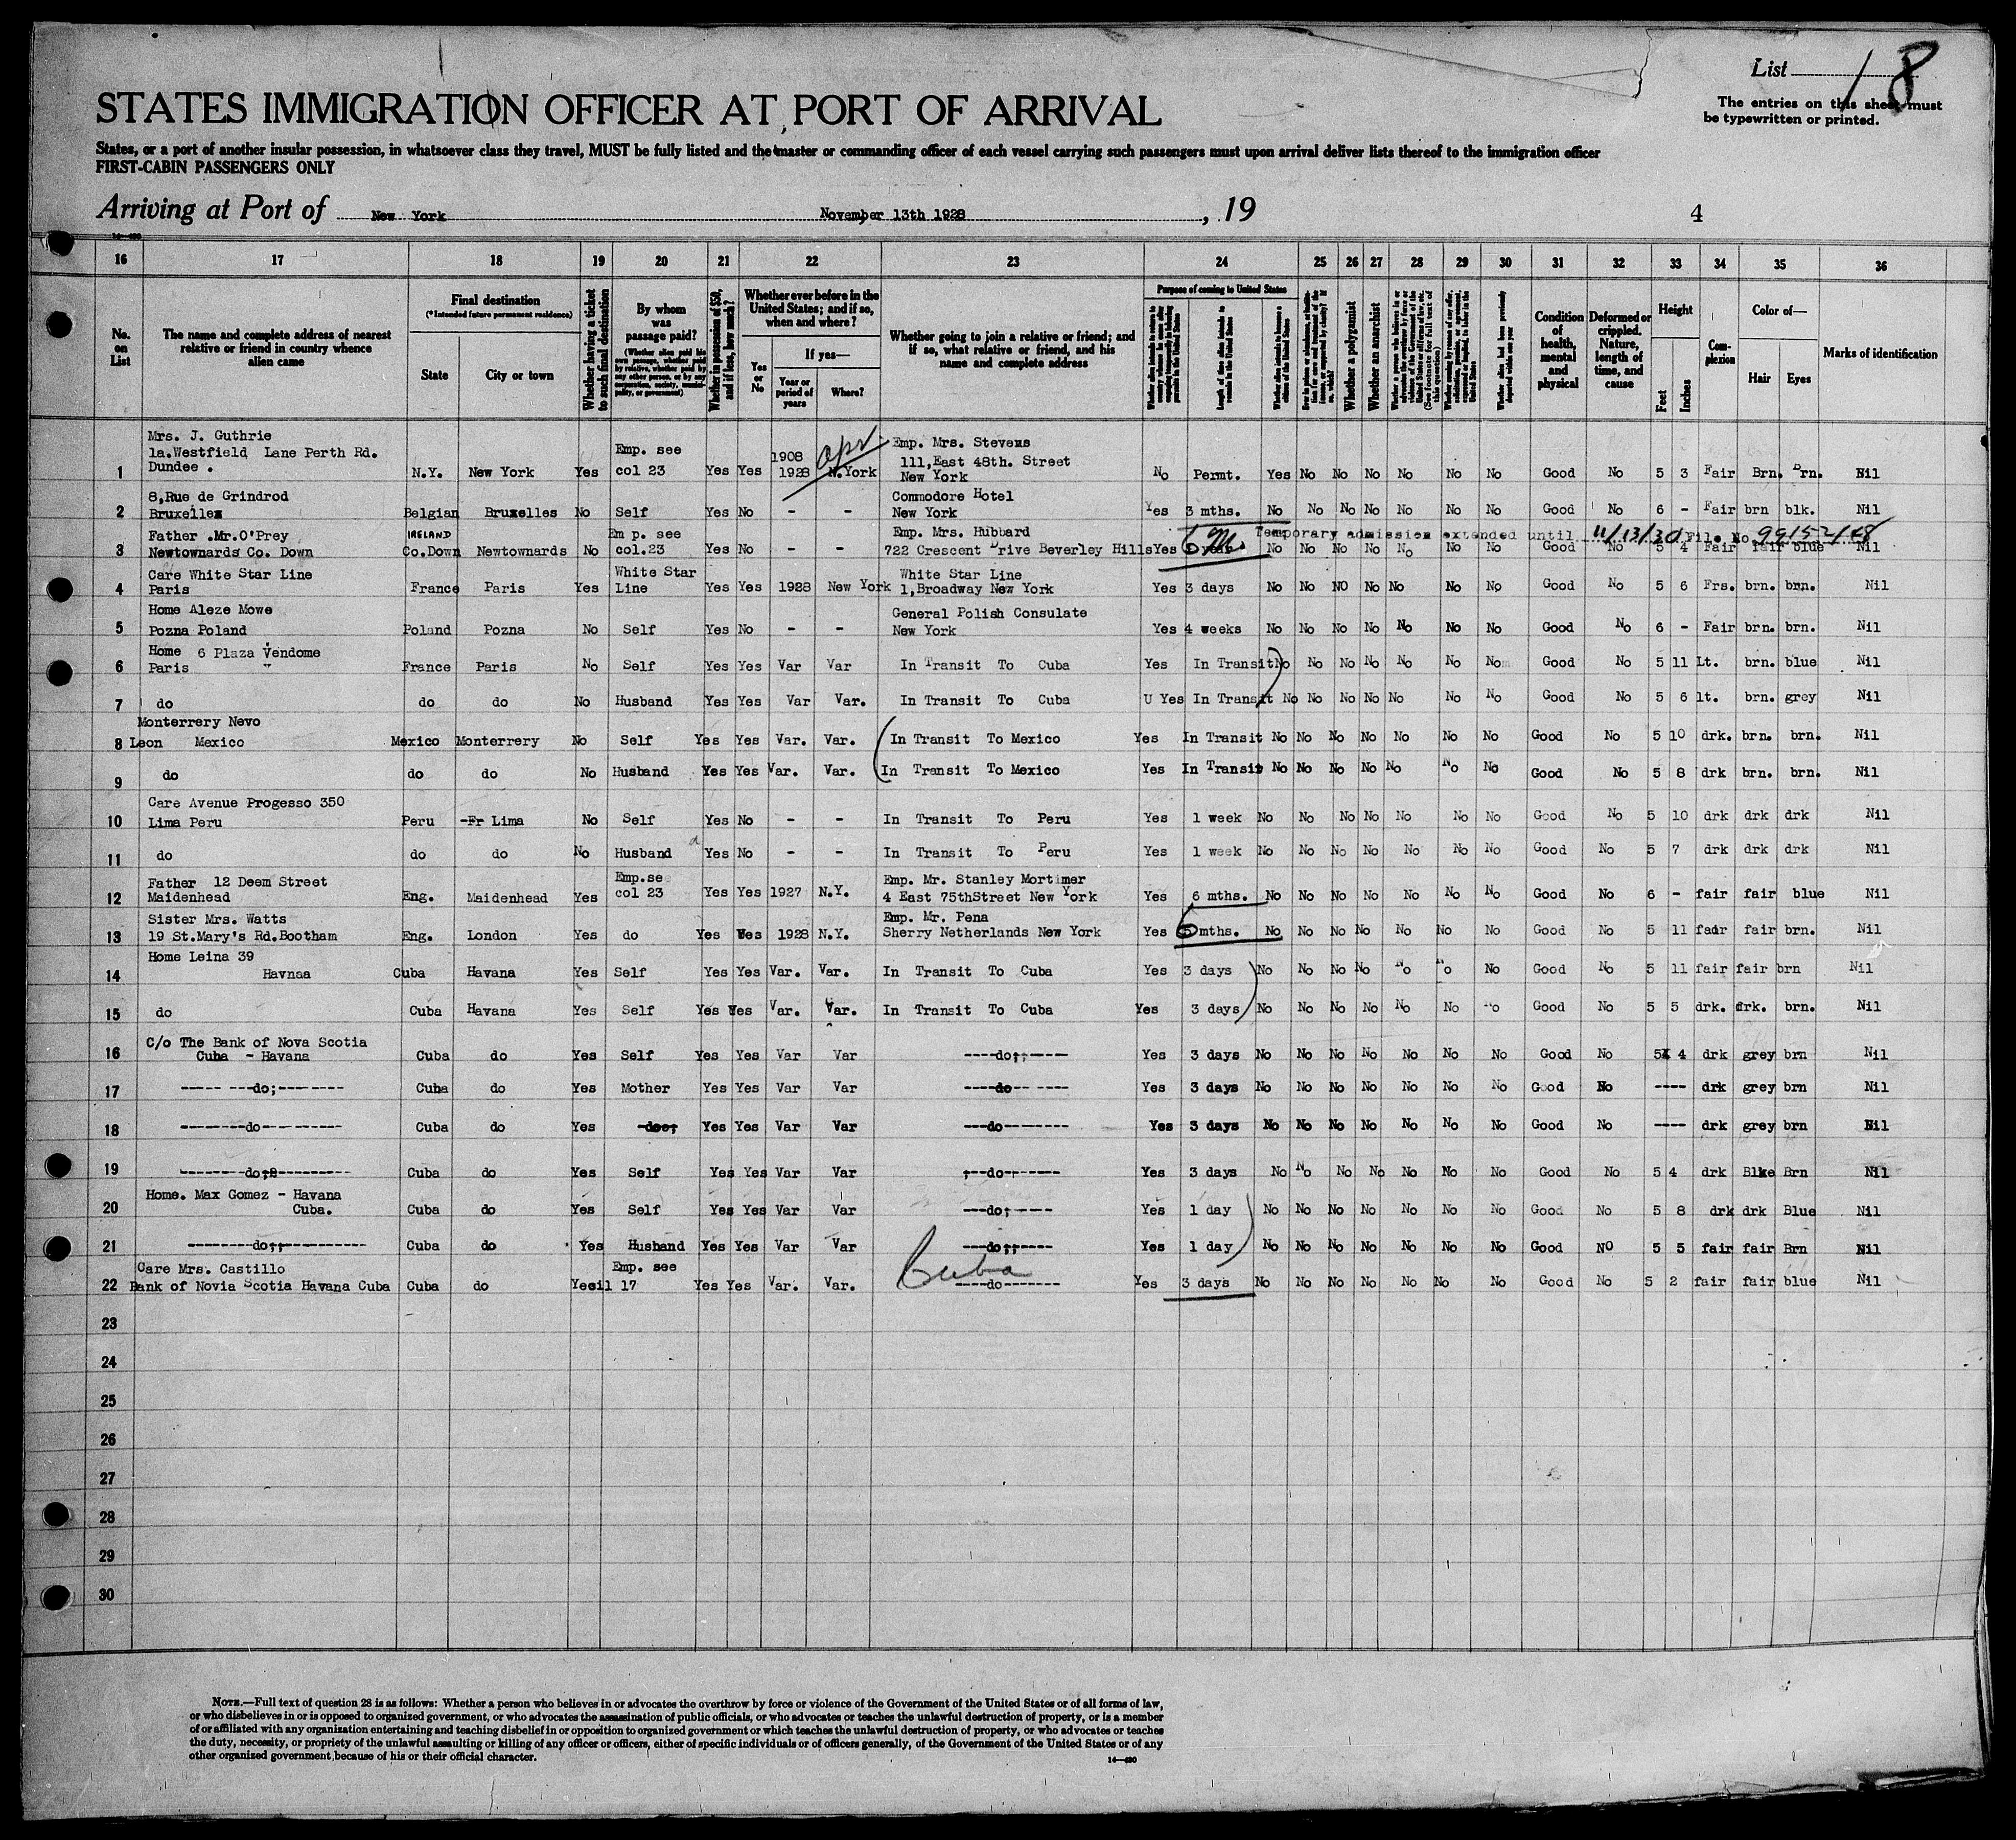 List 18
The entries on this sheet must
be typewritten or printed.
STATES IMMIGRATION OFFICER AT PORT OF ARRIVAL
States, or a port of another insular possession, in whatsoever class they travel, MUST be fully listed and the master or commanding officer of each vessel carrying such passengers must upon arrival deliver lists thereof to the immigration officer
FIRST-CABIN PASSENGERS ONLY
Arriving at Port of New York November 13th 1928, 19 4
16 17 18 19 20 21 22 23 24 25 26 27 28 29 30 31 32 33 34 35 36
No. on List
The name and complete address of nearest relative or friend in country whence alien came
Final destination
(*Intended future permanent residence)
State City or town
Whether having a ticket to such final destination
By whom was passage paid?
Whether in possession of $50, and if less, how much?
Whether ever before in the United States; and if so, when and where?
Yes or No
If yes—
Year or period of years Where?
Whether going to join a relative or friend; and if so, what relative or friend, and his name and complete address
Purpose of coming to United States
Whether a polygamist
Whether an anarchist
Condition of health, mental and physical
Deformed or crippled. Nature, length of time, and cause
Height
Feet Inches
Complexion
Color of—
Hair Eyes
Marks of identification
Mrs. J. Guthrie Emp. see 1908 Emp. Mrs. Stevens
1a.Westfield Lane Perth Rd. 111,East 48th. Street
1 Dundee . N.Y. New York Yes col 23 Yes Yes 1928 N.York New York No Permt. Yes No No No No No No Good No 5 3 Fair Brn. Brn. Nil
8,Rue de Grindrod Commodore Hotel
2 Bruxelles Belgian Bruxelles No Self Yes No - - New York Yes 3 mths. No No No No No No No Good No 6 - Fair brn blk. Nil
Father .Mr.O'Prey IRELAND Em p. see Emp. Mrs. Hubbard Temporary admission extended until 11/13/30 File No.
3 Newtownards Co. Down Co.Down Newtownards No col.23 Yes No - - 722 Crescent Drive Beverley Hills Yes No No No No No No No Good No 5 4 Fair fair blue Nil
Care White Star Line White Star White Star Line
4 Paris France Paris Yes Line Yes Yes 1928 New York 1,Broadway New York Yes 3 days No No NO No No No No Good No 5 6 Frs. brn. brn. Nil
Home Aleze Mowe General Polish Consulate
5 Pozna Poland Poland Pozna No Self Yes No - - New York Yes 4 weeks No No No No No No No Good No 6 - Fair brn. brn. Nil
Home 6 Plaza Vendome
6 Paris " France Paris No Self Yes Yes Var Var In Transit To Cuba Yes In Transit No No No No No No No Good No 5 11 Lt. brn. blue Nil
7 do do do No Husband Yes Yes Var Var. In Transit To Cuba U Yes In Transit No No No No No No No Good No 5 6 lt. brn. grey Nil
Monterrery Nevo
8 Leon Mexico Mexico Monterrery No Self Yes Yes Var. Var. In Transit To Mexico Yes In Transit No No No No No No No Good No 5 10 drk. brn. brn. Nil
9 do do do No Husband Yes Yes Var. Var. In Transit To Mexico Yes In Transit No No No No No No No Good No 5 8 drk brn. brn. Nil
Care Avenue Progesso 350
10 Lima Peru Peru -Fr Lima No Self Yes No - - In Transit To Peru Yes 1 week No No No No No No No Good No 5 10 drk drk drk Nil
11 do do do No Husband Yes No - - In Transit To Peru Yes 1 week No No No No No No No Good No 5 7 drk drk drk Nil
Father 12 Deem Street Emp.see Emp. Mr. Stanley Mortimer
12 Maidenhead Eng. Maidenhead Yes col 23 Yes Yes 1927 N.Y. 4 East 75thStreet New York Yes 6 mths. No No No No No No No Good No 6 - fair fair blue Nil
Sister Mrs. Watts Emp. Mr. Pena
13 19 St.Mary's Rd.Bootham Eng. London Yes do Yes Yes 1928 N.Y. Sherry Netherlands New York Yes 6 mths. No No No No No No No Good No 5 11 fair fair brn. Nil
Home Leina 39
14 Havnaa Cuba Havana Yes Self Yes Yes Var. Var. In Transit To Cuba Yes 3 days No No No No No No No Good No 5 11 fair fair brn Nil
15 do Cuba Havana Yes Self Yes Yes Var. Var. In Transit To Cuba Yes 3 days No No No No No No No Good No 5 5 drk. drk. brn. Nil
C/o The Bank of Nova Scotia
16 Cuba - Havana Cuba do Yes Self Yes Yes Var Var ----do;;----- Yes 3 days No No No No No No No Good No 5 4 drk grey brn Nil
17 ----- ---do;-------- Cuba do Yes Mother Yes Yes Var Var ----do-- ---- Yes 3 days No No No No No No No Good No ---- drk grey brn Nil
18 --------do---------- Cuba do Yes Yes Yes Var Var ---do------- Yes 3 days No No No No No No No Good No ---- drk grey brn Nil
19 Cuba do Yes Self Yes Yes Var Var Yes 3 days No No No No No No No Good No 5 4 drk Brn Nil
Home. Max Gomez - Havana
20 Cuba. Cuba do Yes Self Yes Yes Var Var ---do;----- Yes 1 day No No No No No No No Good No 5 8 drk drk Blue Nil
21 --------do;;----------- Cuba do Yes Husband Yes Yes Var Var ----do;;----- Yes 1 day No No No No No No No Good NO 5 5 fair fair Brn Nil
Care Mrs. Castillo Emp. see Cuba
22 Bank of Novia Scotia Havana Cuba Cuba do Yes 17 Yes Yes Var. Var. ----do------- Yes 3 days No No No No No No No Good No 5 2 fair fair blue Nil
23
24
25
26
27
28
29
30
NOTE.—Full text of question 28 is as follows: Whether a person who believes in or advocates the overthrow by force or violence of the Government of the United States or of all forms of law,
or who disbelieves in or is opposed to organized government, or who advocates the assassination of public officials, or who advocates or teaches the unlawful destruction of property, or is a member
of or affiliated with any organization entertaining and teaching disbelief in or opposition to organized government or which teaches the unlawful destruction of property, or who advocates or teaches
the duty, necessity, or propriety of the unlawful assaulting or killing of any officer or officers, either of specific individuals or of officers generally, of the Government of the United States or of any
other organized government because of his or their official character.
14—430